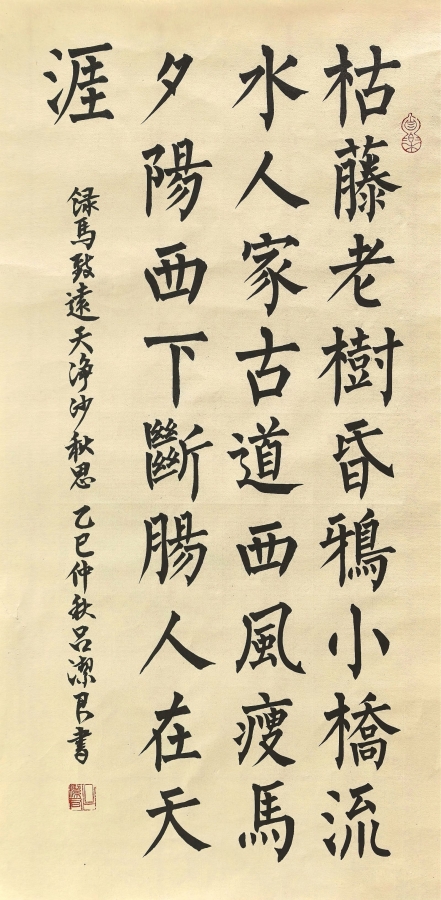 枯藤老樹昏鴉小橋流
水人家古道西風瘦馬
夕陽西下斷腸人在天
涯
録馬致遠天净沙秋思 乙巳仲秋呂潔良書